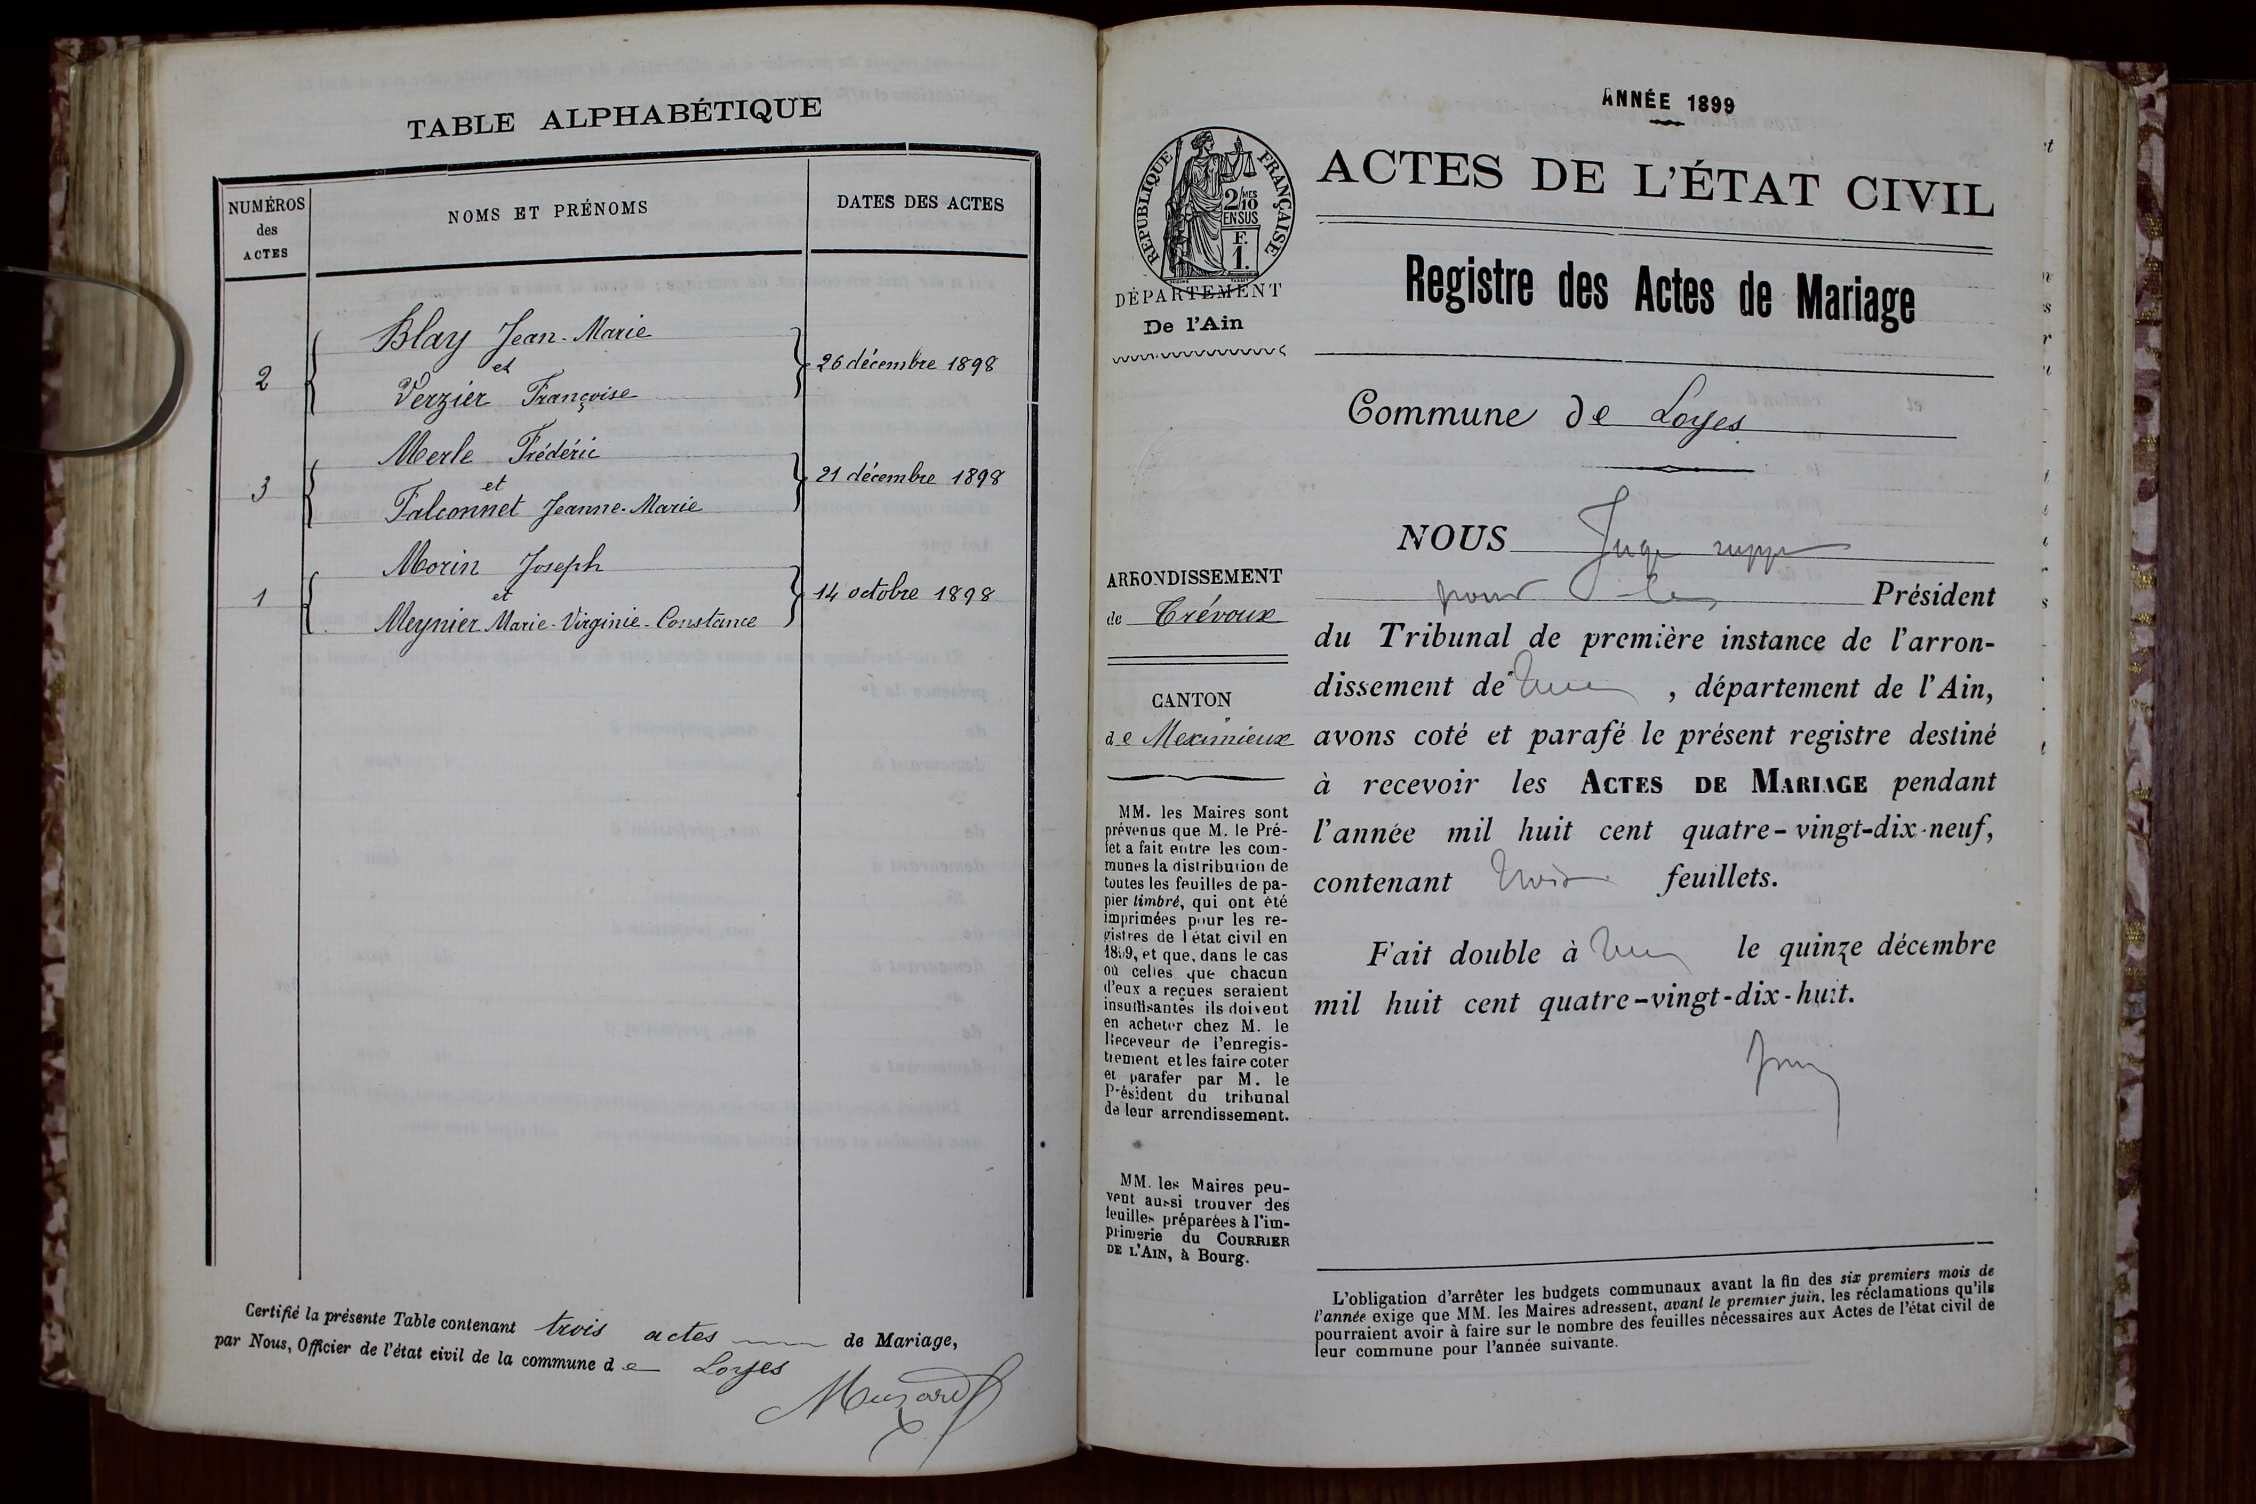 TABLE ALPHABÉTIQUE
NUMÉROS
des
ACTES
NOMS ET PRÉNOMS
DATES DES ACTES
Blay Jean-Marie
et
2
26 décembre 1898
Verzier Françoise
Merle Frédéric
et
3
21 décembre 1898
Falconnet Jeanne-Marie
Morin Joseph
et
1
14 octobre 1898
Meynier Marie-Virginie-Constance
Certifié la présente Table contenant trois actes de Mariage,
par Nous, Officier de l'état civil de la commune de Loyes
ANNÉE 1899
RÉPUBLIQUE FRANÇAISE
2/10 MES
EN SUS
F.
1.
DÉPARTEMENT
De l'Ain
ARRONDISSEMENT
de Trévoux
CANTON
de Meximieux
MM. les Maires sont
prévenus que M. le Pré-
fet a fait entre les com-
munes la distribution de
toutes les feuilles de pa-
pier timbré, qui ont été
imprimées pour les re-
gistres de l'état civil en
1899, et que, dans le cas
où celles que chacun
d'eux a reçues seraient
insuffisantes ils doivent
en acheter chez M. le
Receveur de l'enregis-
trement et les faire coter
et parafer par M. le
Président du tribunal
de leur arrondissement.
MM. les Maires peu-
vent aussi trouver des
feuilles préparées à l'im-
primerie du COURRIER
DE L'AIN, à Bourg.
ACTES DE L'ÉTAT CIVIL
Registre des Actes de Mariage
Commune de Loyes
NOUS Juge supp
pour le Président
du Tribunal de première instance de l'arron-
dissement de , département de l'Ain,
avons coté et parafé le présent registre destiné
à recevoir les ACTES DE MARIAGE pendant
l'année mil huit cent quatre-vingt-dix-neuf,
contenant trois feuillets.
Fait double à le quinze décembre
mil huit cent quatre-vingt-dix-huit.
L'obligation d'arrêter les budgets communaux avant la fin des six premiers mois de
l'année exige que MM. les Maires adressent, avant le premier juin, les réclamations qu'ils
pourraient avoir à faire sur le nombre des feuilles nécessaires aux Actes de l'état civil de
leur commune pour l'année suivante.